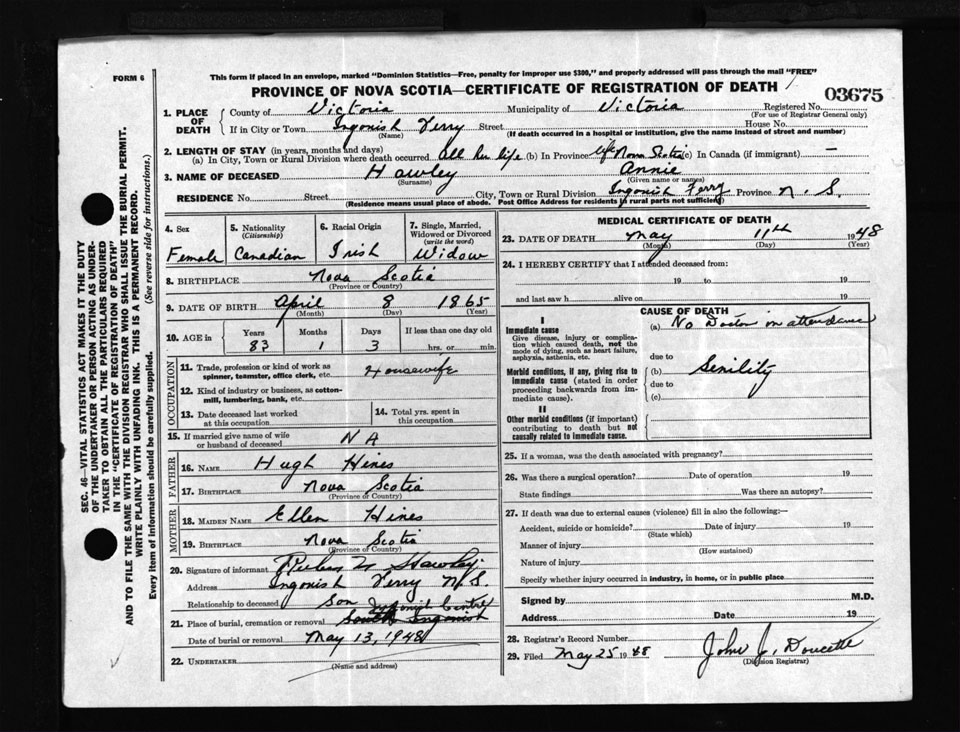 FORM 6
This form if placed in an envelope, marked "Dominion Statistics—Free, penalty for improper use $300," and properly addressed will pass through the mail "FREE"
PROVINCE OF NOVA SCOTIA—CERTIFICATE OF REGISTRATION OF DEATH
03675
1. PLACE OF DEATH
County of Victoria Municipality of Victoria Registered No.
(For use of Registrar General only)
If in City or Town Ingonish Ferry Street House No.
(Name) (If death occurred in a hospital or institution, give the name instead of street and number)
2. LENGTH OF STAY (in years, months and days)
(a) In City, Town or Rural Division where death occurred All her life (b) In Province life Nova Scotia (c) In Canada (if immigrant) —
3. NAME OF DECEASED Hawley Annie
(Surname) (Given name or names)
RESIDENCE No. Street City, Town or Rural Division Ingonish Ferry Province N. S.
(Residence means usual place of abode. Post Office Address for residents in rural parts not sufficient)
SEC. 46—VITAL STATISTICS ACT MAKES IT THE DUTY
OF THE UNDERTAKER OR PERSON ACTING AS UNDER-
TAKER TO OBTAIN ALL THE PARTICULARS REQUIRED
IN THE "CERTIFICATE OF REGISTRATION OF DEATH"
AND TO FILE THE SAME WITH THE DIVISION REGISTRAR WHO SHALL ISSUE THE BURIAL PERMIT.
WRITE PLAINLY WITH UNFADING INK. THIS IS A PERMANENT RECORD.
Every item of information should be carefully supplied. (See reverse side for instructions.)
4. Sex
Female
5. Nationality
(Citizenship)
Canadian
6. Racial Origin
Irish
7. Single, Married,
Widowed or Divorced
(write the word)
Widow
8. BIRTHPLACE Nova Scotia
(Province or Country)
9. DATE OF BIRTH April 8 1865
(Month) (Day) (Year)
10. AGE in
Years Months Days If less than one day old
83 1 3 hrs. or min.
OCCUPATION
11. Trade, profession or kind of work as
spinner, teamster, office clerk, etc. Housewife
12. Kind of industry or business, as cotton-
mill, lumbering, bank, etc.
13. Date deceased last worked
at this occupation
14. Total yrs. spent in
this occupation
15. If married give name of wife
or husband of deceased N A
FATHER
16. NAME Hugh Hines
17. BIRTHPLACE Nova Scotia
(Province or Country)
MOTHER
18. MAIDEN NAME Ellen Hines
19. BIRTHPLACE Nova Scotia
(Province or Country)
20. Signature of informant Hawley
Address Ingonish Ferry N.S.
Relationship to deceased Son
Ingonish Centre
21. Place of burial, cremation or removal South Ingonish
Date of burial or removal May 13, 1948
22. UNDERTAKER
(Name and address)
MEDICAL CERTIFICATE OF DEATH
23. DATE OF DEATH May 11th 1948
(Month) (Day) (Year)
24. I HEREBY CERTIFY that I attended deceased from:
19 to 19
and last saw h alive on 19
CAUSE OF DEATH
I
Immediate cause
Give disease, injury or complica-
tion which caused death, not the
mode of dying, such as heart failure,
asphyxia, asthenia, etc.
Morbid conditions, if any, giving rise to
immediate cause (stated in order
proceeding backwards from im-
mediate cause).
II
Other morbid conditions (if important)
contributing to death but not
causally related to immediate cause.
(a) No Doctor in attendance
due to
(b) Senility
due to
(c)
25. If a woman, was the death associated with pregnancy?
26. Was there a surgical operation? Date of operation 19
State findings Was there an autopsy?
27. If death was due to external causes (violence) fill in also the following:—
Accident, suicide or homicide? Date of injury 19
(State which)
Manner of injury
(How sustained)
Nature of injury
Specify whether injury occurred in industry, in home, or in public place
Signed by M.D.
Address Date 19
28. Registrar's Record Number
29. Filed May 25 1948 John J. Doucette
(Division Registrar)